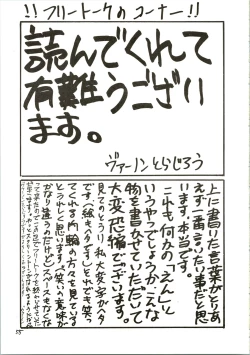 !! フリートークのコーナー!!
読んでくれて
有難うござい
ます。
ヴァーノンとらじろう
上に書いた言葉がとりあ
えず一番言いたい事だと思
います。本当です。
これも何かの「えん」と
いうやつでしょうか。こんな
物を書かせていただいて
大変恐縮でございます。
見てのとうり、私、大変字がヘタ
です。(絵もヘタです)それでも笑っ
てくれる内輪の方々を見ている
とうれしく思います。(笑いの意味が
かなり違うのだけど)スペースもなくな